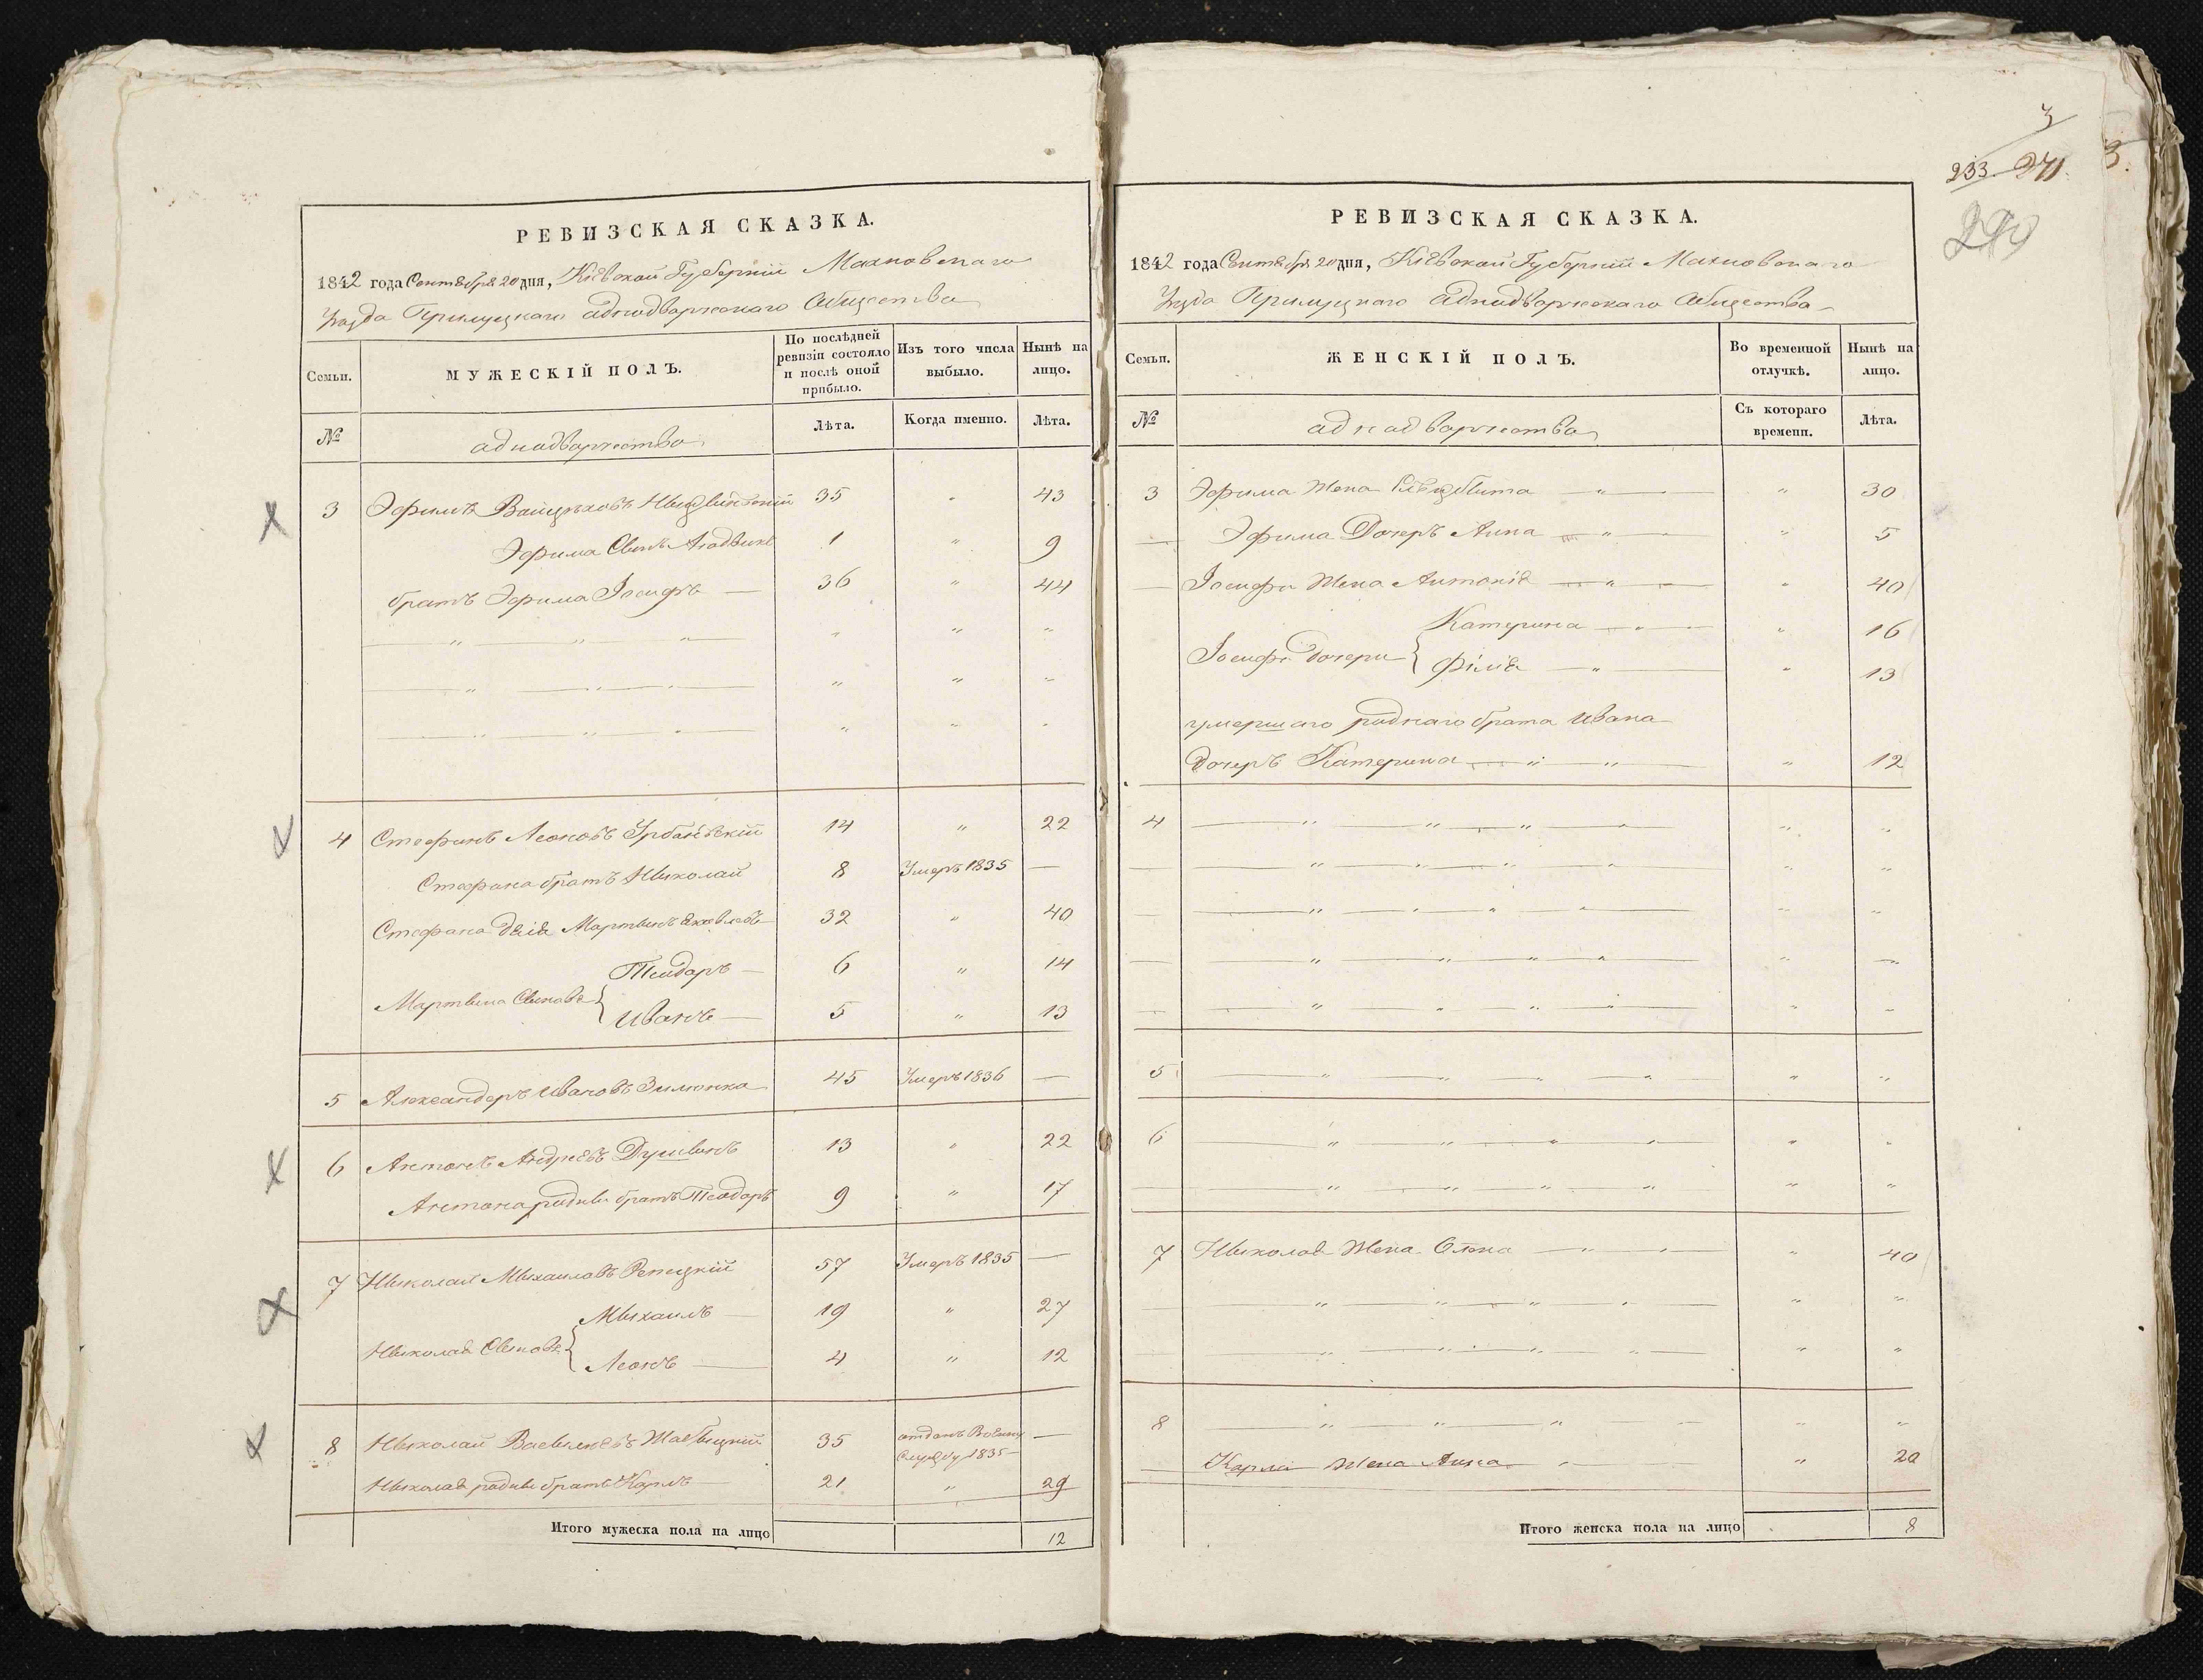 РЕВИЗСКАЯ СКАЗКА.
1842 года Сентебря 20 дня, Кіевской Губерніи Махновскаго
Уезда Прилуцкаго аднодворческаго Общества
Семьи.
МУЖЕСКІЙ ПОЛЪ.
По послѣдней ревизіи состояло и послѣ оной прибыло.
Изъ того числа выбыло.
Нынѣ на лицо.
№
аднодворчества
Лѣта.
Когда именно.
Лѣта.
3 Эфимъ Войцеховъ 35 " 43
Эфима Сынъ 1 " 9
братъ Эфима Іосифъ — 36 " 44
4 Стефанъ Леоновъ Урбанскій 14 " 22
Стефана братъ Николай 8 Умеръ 1835 —
Стефана дядя Мартинъ Яковлевъ 32 " 40
Мартина Сынове { Теодоръ — 6 " 14
Иванъ — 5 " 13
5 Александеръ Ивановъ 45 Умеръ 1836 —
6 Антонъ Андреевъ 13 " 22
Антона родны братъ Теодоръ 9 " 17
7 Николай Михаиловъ Репецкій 57 Умеръ 1835 —
Николая Сынове { Михаилъ — 19 " 27
Леонъ — 4 " 12
8 Николай 35 отданъ Воену Службу 1835 —
Николая родны братъ Карлъ 21 " 29
Итого мужеска пола на лицо 12
3
233. 271. 3.
РЕВИЗСКАЯ СКАЗКА.
1842 года Сентебря 20 дня, Кіевской Губерніи Махновскаго
Уезда Прилуцкаго аднодворческаго Общества
Семьи.
ЖЕНСКІЙ ПОЛЪ.
Во временной отлучкѣ.
Нынѣ на лицо.
№
аднодворчества
Съ котораго времени.
Лѣта.
3 Эфима Жена " 30
Эфима Дочеръ Анна " 5
Іосифа Жена Антонія " 40
Іосифа дочери { Катерина " 16
" 13
умершаго роднаго брата Ивана
дочеръ Катерина " 12
4
5
6
7 Николая Жена Олена " 40
8
Карла Жена Анна " 20
Итого женска пола на лицо 8